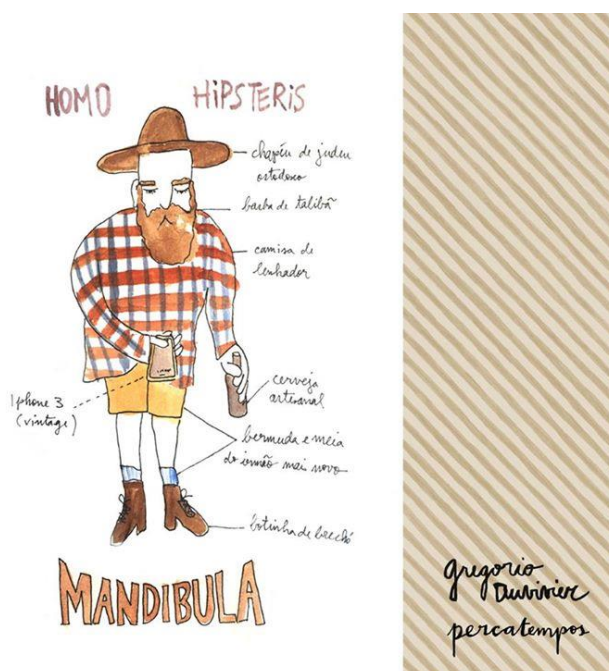 HOMO HiPSTERiS
chapéu de judeu
ortodoxo
barba de talibã
camisa de
lenhador
Iphone 3
(vintage)
cerveja
artesanal
bermuda e meia
do irmão mais novo
botinha de brechó
MANDIBULA
gregorio
Duvivier
percatempos